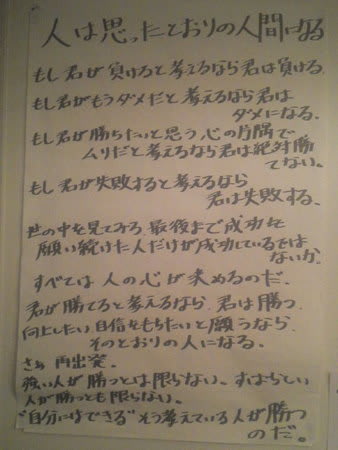 人は思ったとおりの人間になる
もし君が負けると考えるなら君は負ける。
もし君がもうダメだと考えるなら君は
ダメになる。
もし君が勝ちたいと思う心の片隅で
ムリだと考えるなら君は絶対勝
てない。
もし君が失敗すると考えるなら
君は失敗する。
世の中を見てみろ、最後まで成功を
願い続けた人だけが成功しているでは
ないか。
すべては人の心が決めるのだ。
君が勝てると考えるなら、君は勝つ。
向上したい自信をもちたいと願うなら、
そのとおりの人になる。
さぁ 再出発。
強い人が勝つとは限らない。すばらしい
人が勝つとも限らない。
"自分にはできる"そう考えている人が勝つ
のだ。